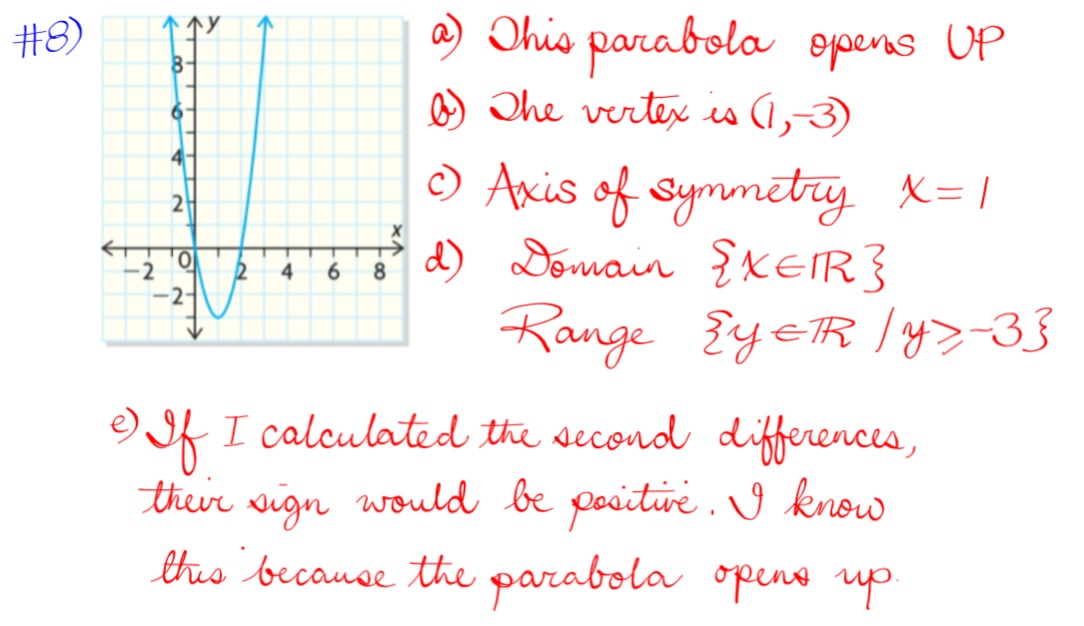 #8)
y
8
6
4
2
x
-2 0 2 4 6 8
-2
a) This parabola opens UP
b) The vertex is (1,-3)
c) Axis of symmetry x = 1
d) Domain {x∈ℝ}
Range {y∈ℝ / y≥-3}
e) If I calculated the second differences,
their sign would be positive. I know
this because the parabola opens up.